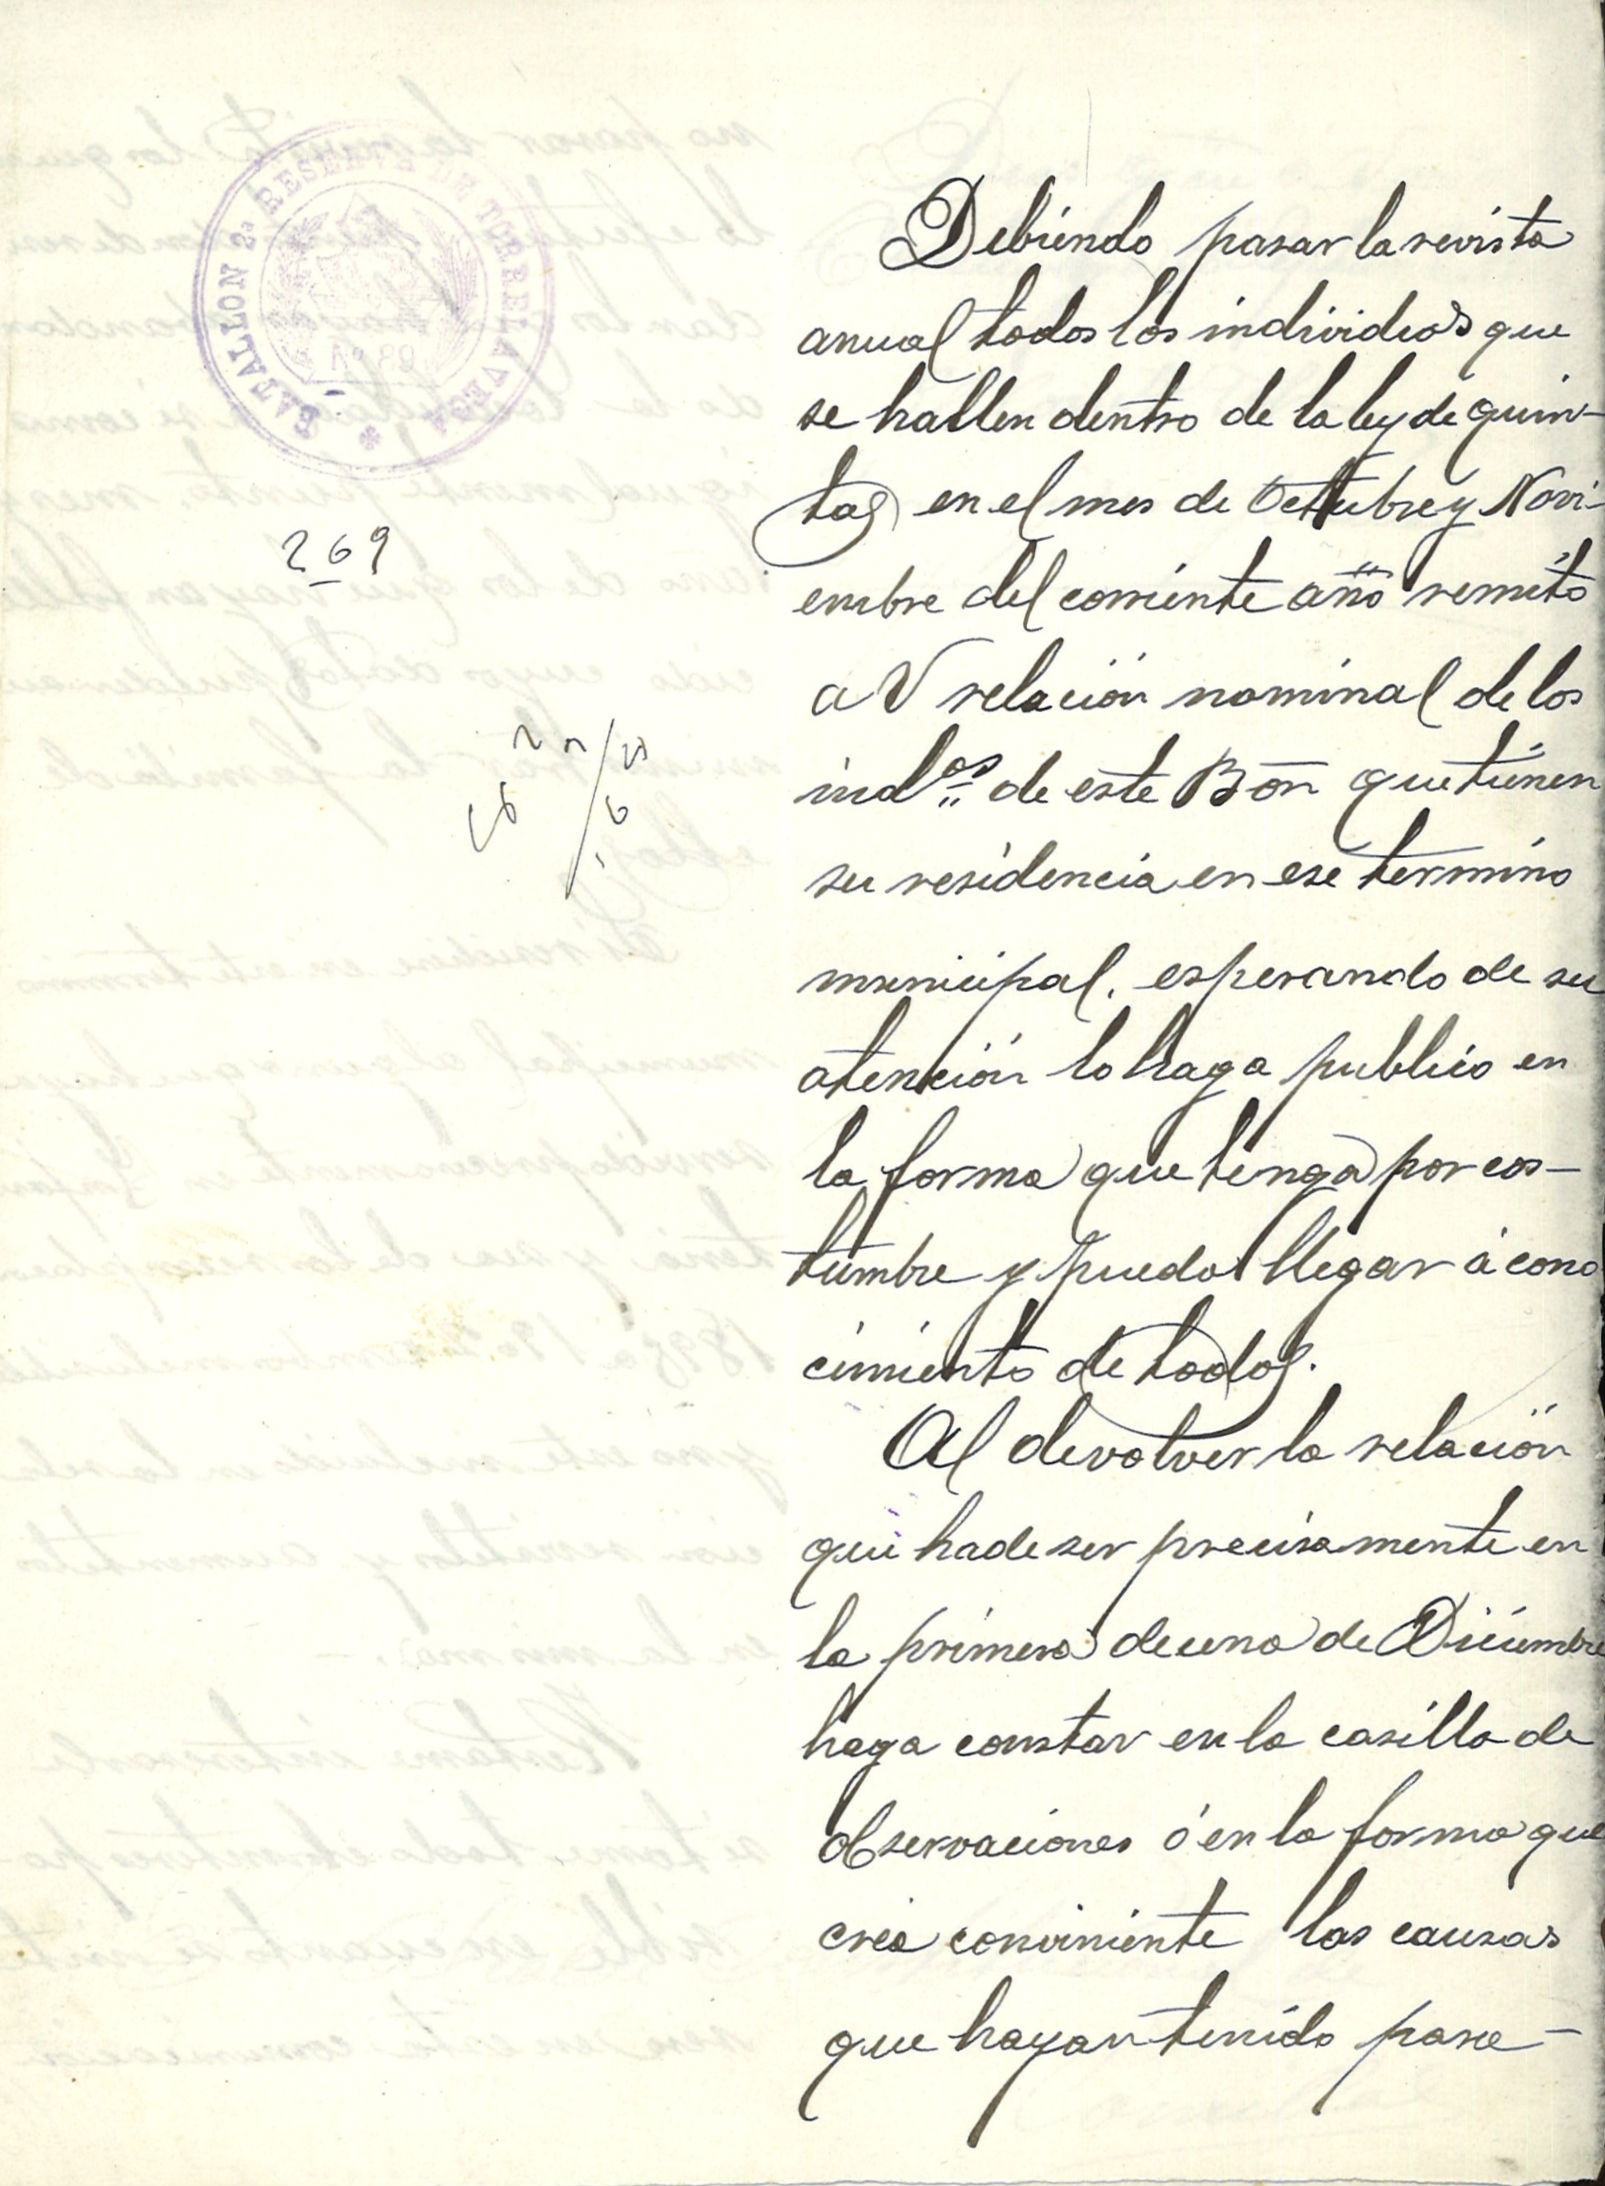 BATALLON 2ª RESERVA DE TORRELAVEGA
Nº 89
269
Debiendo pasar la revista
anual todos los individuos que
se hallen dentro de la ley de quin-
tas en el mes de Octubre y Novi-
embre del corriente año remito
a V relación nominal de los
indºˢ de este Bón que tienen
su residencia en ese termino
municipal. esperando de su
atención lo haga publico en
la forma que tenga por cos-
tumbre y pueda llegar á cono
cimiento de todos.
Al devolver la relación
que ha de ser precisamente en
la primera decena de Diciembre
haga constar en la casilla de
observaciones ó en la forma que
crea conviniente las causas
que hayan tenido para-